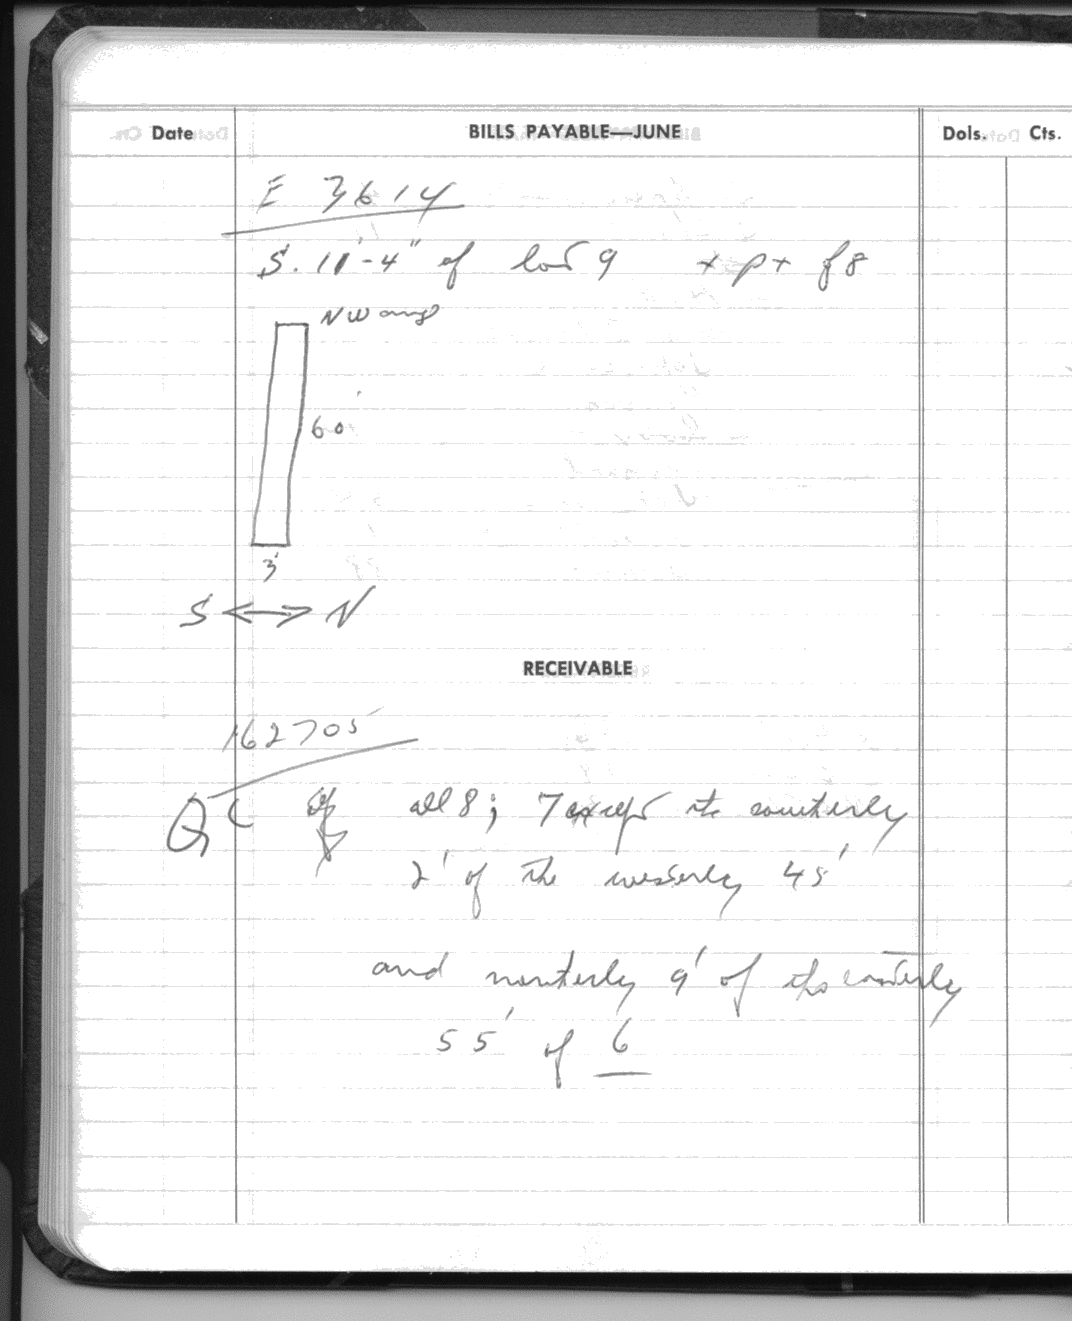 Date BILLS PAYABLE—JUNE Dols. Cts.
E 3614
S. 11'-4" of lot 9 + pt of 8
NW ang
60'
3'
S ↔ N
RECEIVABLE
162705
QC of all 8; 7 except the southerly
2' of the westerly 45'
and northerly 9' of the easterly
55' of 6